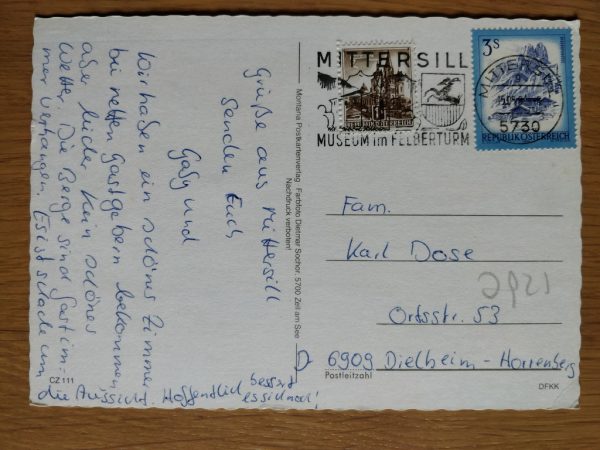 Grüße aus Mittersill
senden Euch
Gaby und
Wir haben ein schönes Zimmer
bei netten Gastgebern bekommen
aber leider kein schönes
Wetter. Die Berge sind fast im-
mer verhangen. Es ist schade um
die Aussicht. Hoffentlich bessert
es sich noch!
CZ 111
Montana Postkartenverlag Farbfoto Dietmar Sochor, 5700 Zell am See
Nachdruck verboten!
MITTERSILL
MUSEUM im FELBERTURM
3S
REPUBLIK ÖSTERREICH
5730
Fam.
Karl Dose
Ortsstr. 53
D 6909 Dielheim-Horrenberg
Postleitzahl
DFKK